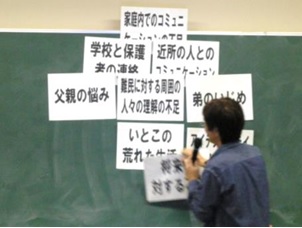 家庭内でのコミュニ
ケーションの不足
学校と保護
者の連絡
近所の人との
コミュニケーション
父親の悩み
難民に対する周囲の
人々の理解の不足
弟のいじめ
いとこの
荒れた生活
将来
対する